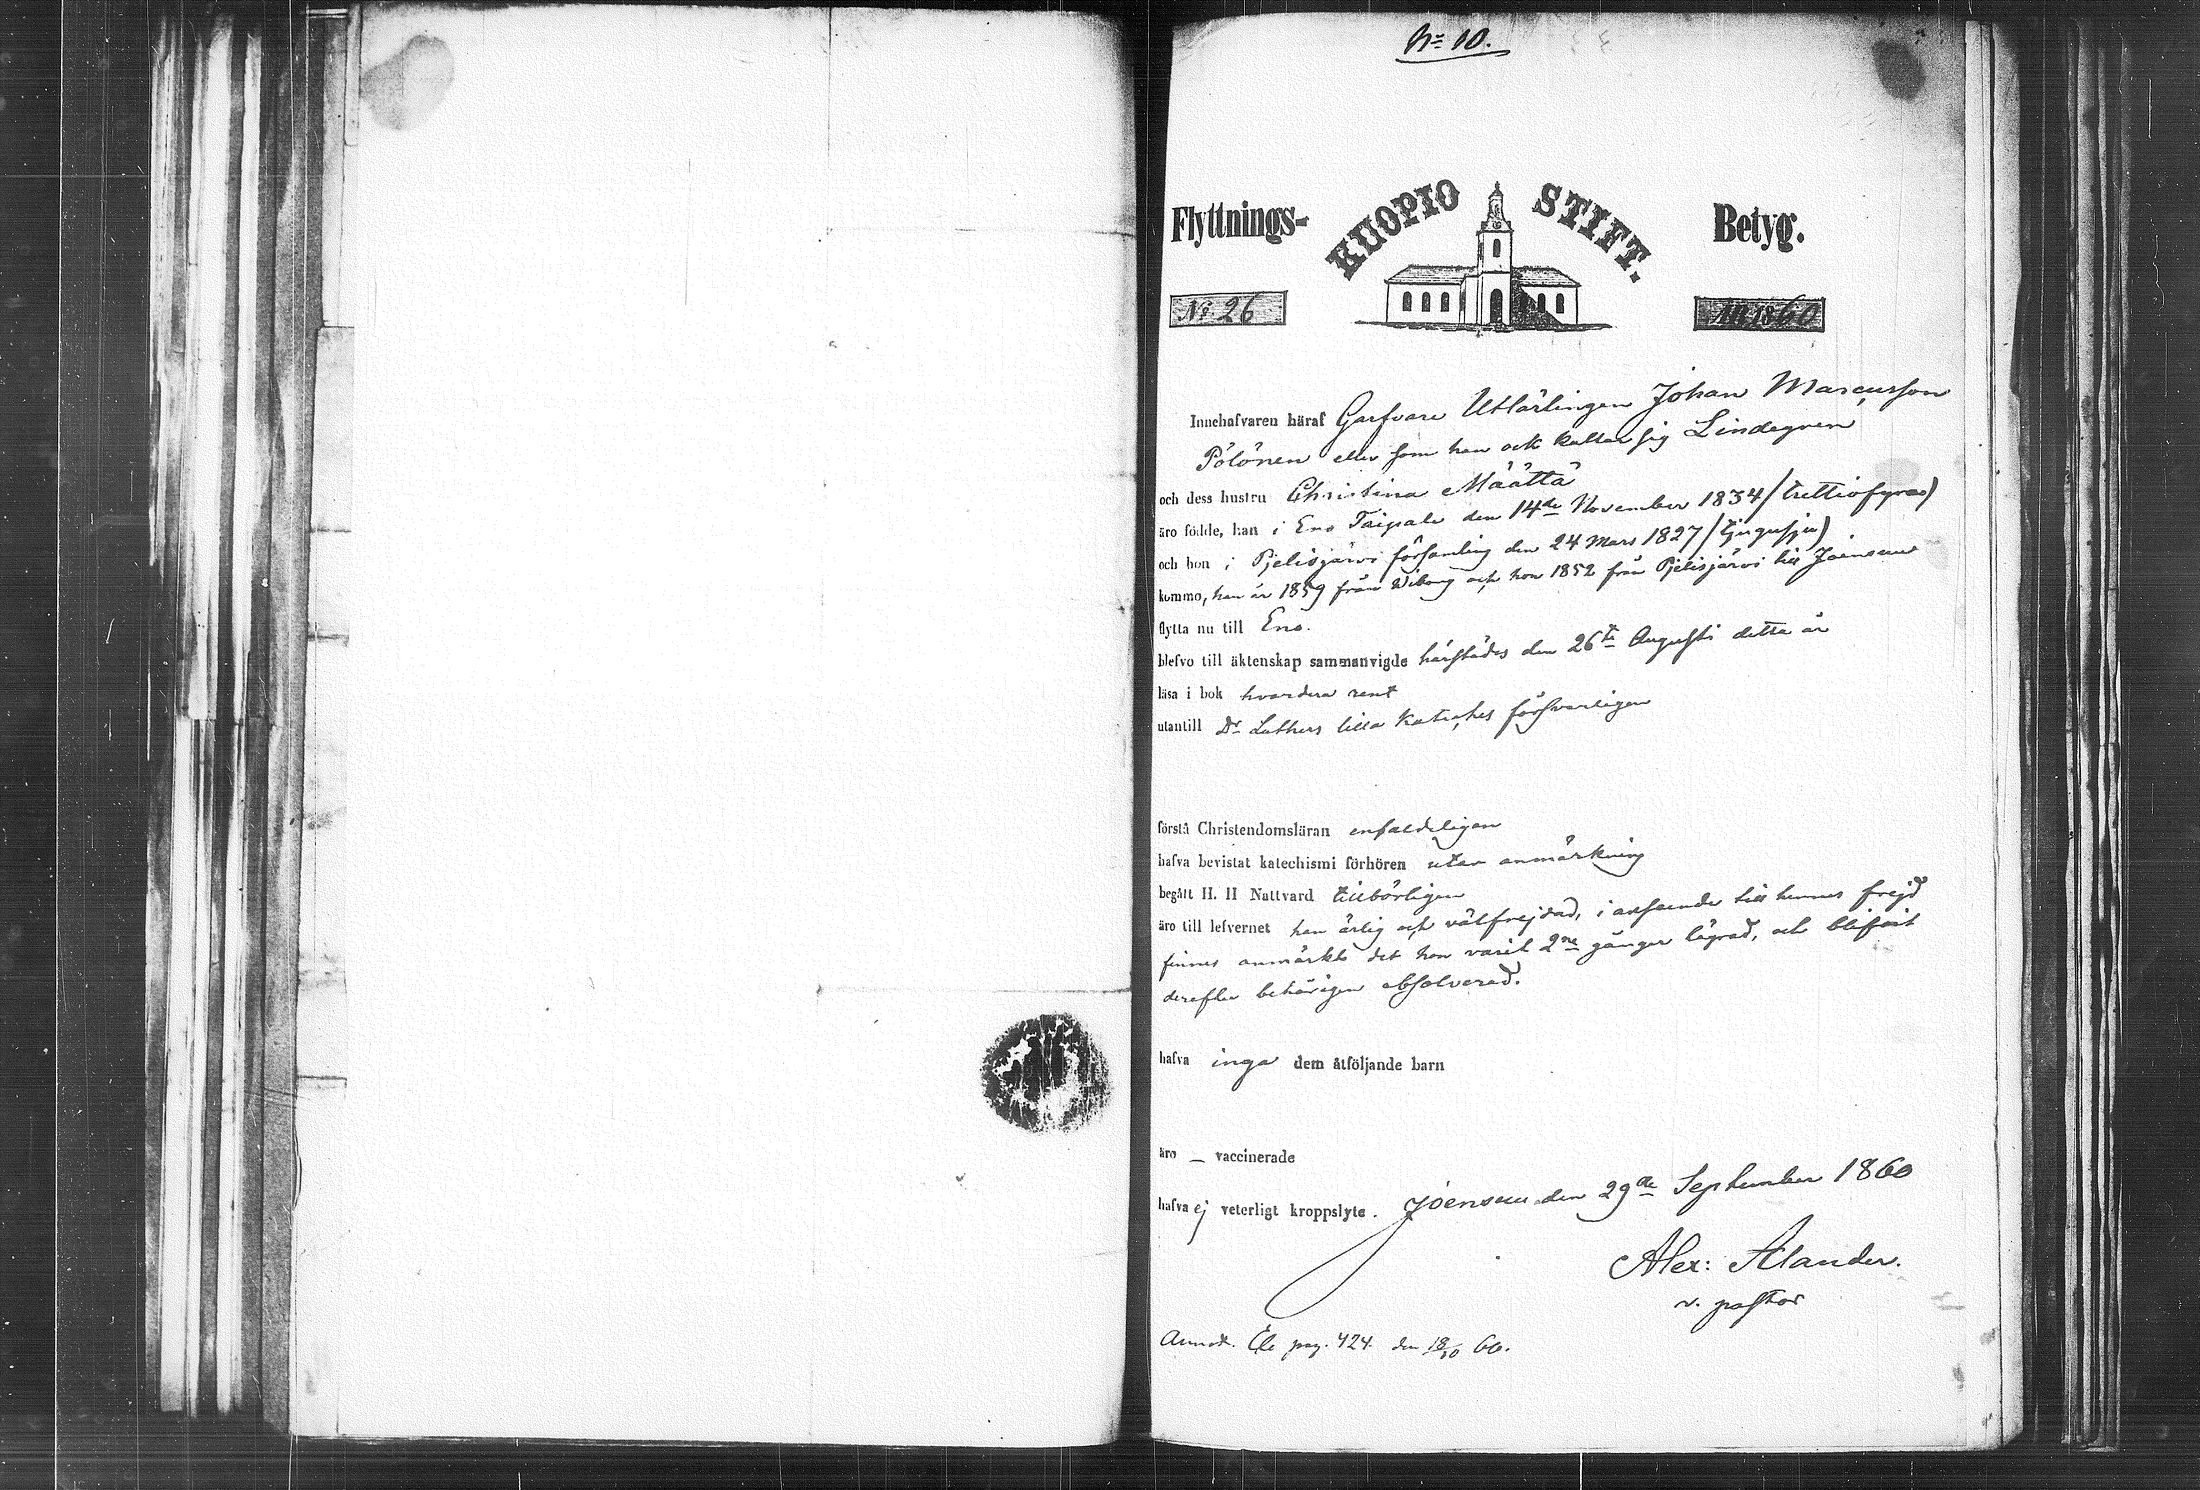 No 10.
Flyttnings- KUOPIO STIFT. Betyg.
No 26 ÅR 1860
Innehafvaren häraf Garfvare Utlärlingen Johan Marcusson
Pölönen eller som han ock kallar sig Lindegren
och dess hustru Christina Määttä
äro födde, han i Eno Taipale den 14de November 1834 / trettiofyra)
och hon i Pjelisjärvi församling den 24 Mars 1827 / tjugusju)
kommo, han år 1859 från Wiborg och hon 1852 från Pjelisjärvi till Joensuu
flytta nu till Eno.
blefvo till äktenskap sammanvigde härstädes den 26te Augusti detta år
läsa i bok hvardera rent
utantill Dr Luthers lilla Kateches försvarligen
förstå Christendomsläran enfaldeligen
hafva bevistat katechismi förhören utan anmärkning
begått H. H Nattvard tillbörligen
äro till lefvernet han ärlig och välfrejdad, i anseende till hennes frejd
finnes anmärkt det hon varit 2ne gånger lägrad, och blifvit
derefter behörigen absolverad.
hafva inga dem åtföljande barn
äro — vaccinerade
hafva ej veterligt kroppslyte. Joensuu den 29de September 1860
Alex: Ålander.
v. pastor
Annot. pag. 424. den 18/10 60.